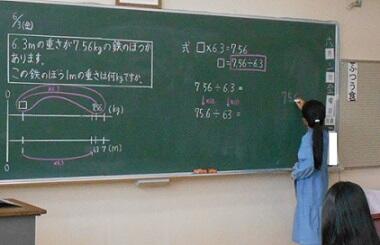 6/3(金)
6.3mの重さが7.56kgの鉄のぼうが
あります。
この鉄のぼう1mの重さは何kgですか。
式 □×6.3=7.56
□=7.56÷6.3
7.56÷6.3=
75.6÷63=
0 □ 7.56 (kg)
0 (m)
75.6
ぶつう食